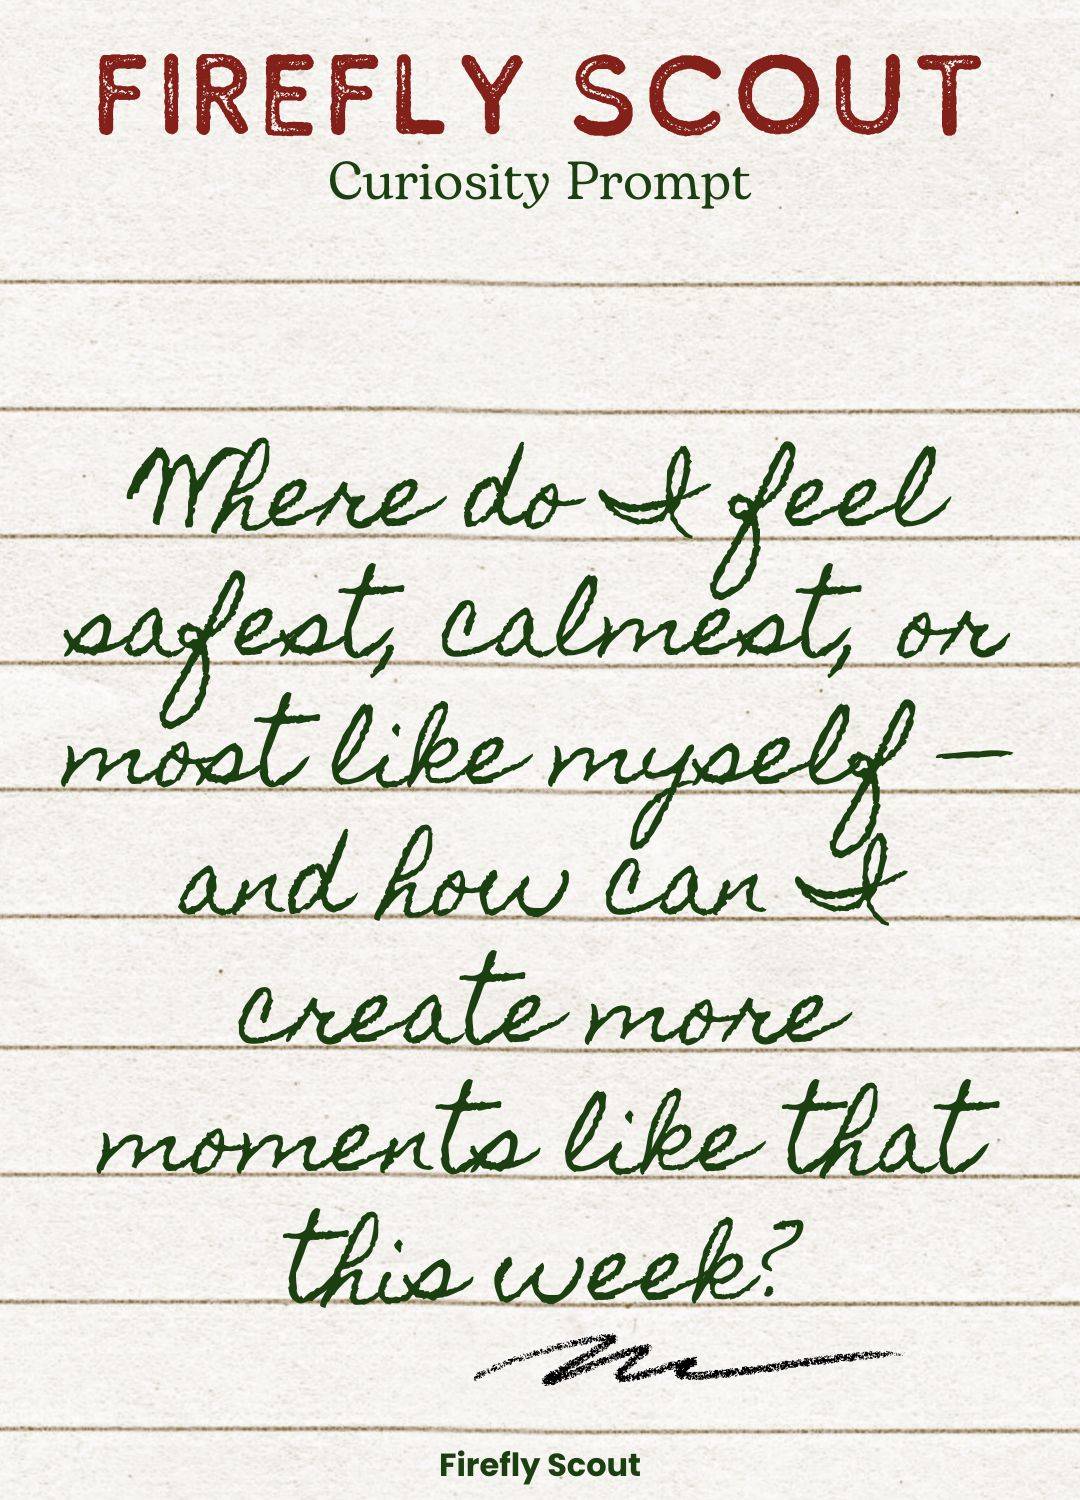 FIREFLY SCOUT
Curiosity Prompt
Where do I feel
safest, calmest, or
most like myself —
and how can I
create more
moments like that
this week?
Firefly Scout